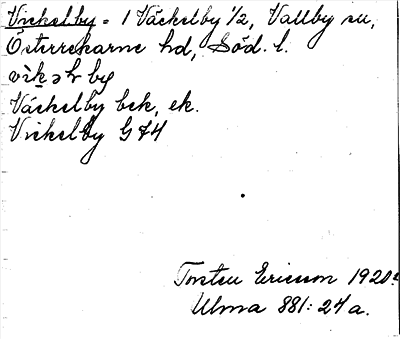 Vickelby = 1 Väckelby 1/2, Vallby sn,
Österrekarne hd, Söd. l.
Väckelby bek, ek.
Vickelby G74
Torsten Ericsson 1920
Ulma 881: 24 a.